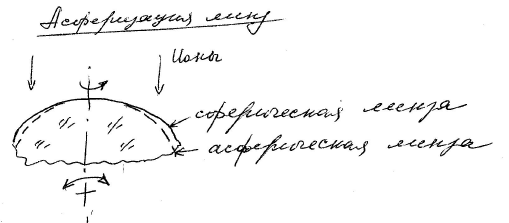 Асферизация линз
Ионы
сферическая линза
асферическая линза